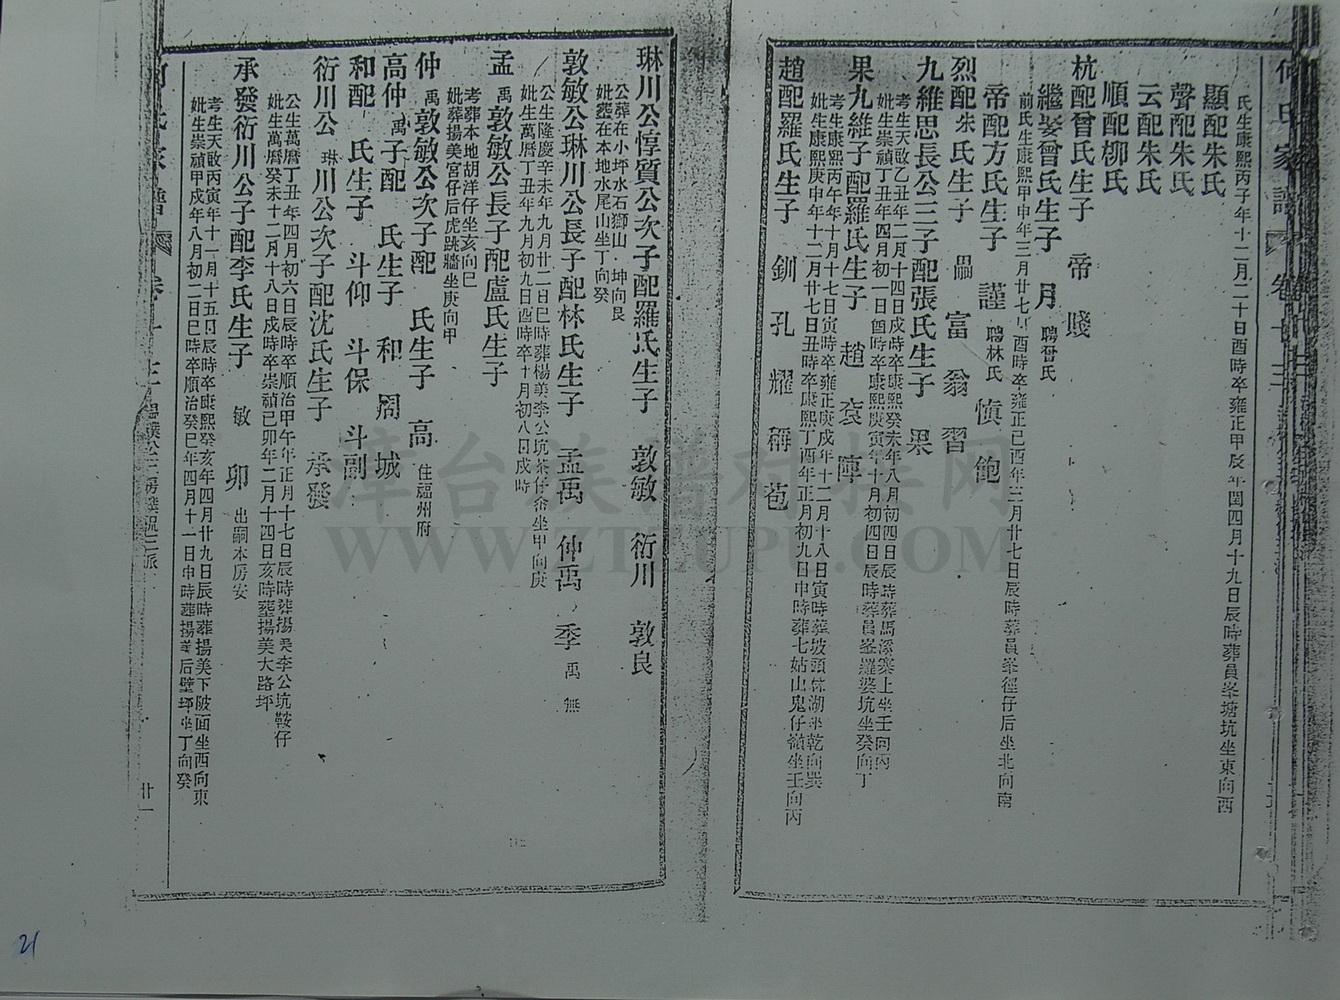 何氏家譜 卷十三
氏生康熙丙子年十二月二十日酉時卒雍正甲辰年閏四月十九日辰時葬員峯塘坑坐東向西
顯配朱氏
聲配朱氏
云配朱氏
順配柳氏
杭配曾氏生子 帝 賤
繼娶曾氏生子 月 聘曾氏
前氏生康熙甲申年三月廿七日酉時卒雍正己酉年三月廿七日辰時葬員峯徑仔后坐北向南
帝配方氏生子 謹 聘林氏 慎 鉋
烈配朱氏生子 畾 富 翁 習
九維思長公三子配張氏生子 果
考生天啟乙丑年二月十四日戌時卒康熙癸未年八月初四日辰時葬馬溪寨上坐壬向丙
妣生崇禎丁丑年四月初一日酉時卒康熙庚寅年十月初四日辰時葬員峯羅婆坑坐癸向丁
果九維子配羅氏生子 趙 袞 陣
考生康熙丙午年十月十七日寅時卒雍正庚戌年十二月十八日寅時葬坡頭林湖坐乾向巽
妣生康熙庚申年十二月廿七日丑時卒康熙丁酉年正月初九日申時葬七姑山鬼仔嶺坐壬向丙
趙配羅氏生子 釧 孔 耀 稱 苞
琳川公惇質公次子配羅氏生子 敦敏 衍川 敦良
公葬在小坪水石獅山 坤向艮
妣塟在本地水尾山坐丁向癸
敦敏公琳川公長子配林氏生子 孟禹 仲禹 季禹 無
公生隆慶辛未年九月廿二日巳時葬楊美李公坑茶仔畲坐甲向庚
妣生萬曆丁丑年九月初九日酉時卒十月初八日戌時
孟禹敦敏公長子配盧氏生子
考葬本地胡洋仔坐亥向巳
妣葬揚美宮仔后虎跳牆坐庚向甲
仲禹敦敏公次子配 氏生子 高 住福州府
高仲禹子配 氏生子 和 周 城
和配 氏生子 斗仰 斗保 斗副
衍川公 琳川公次子配沈氏生子 承發
公生萬曆丁丑年四月初六日辰時卒順治甲午年正月十七日辰時葬揚美李公坑鞍仔
妣生萬曆癸未十二月十八日戌時卒崇禎己卯年二月十四日亥時葬揚美大路坪
承發衍川公子配李氏生子 敏 卯 出嗣本房安
考生天啟丙寅年十一月十五日辰時卒康熙癸亥年四月廿九日辰時葬揚美下陂面坐西向東
妣生崇禎甲戌年八月初二日巳時卒順治癸巳年四月十一日申時葬揚美后壁坪坐丁向癸
何氏家譜 卷十三
廿一
21
库台族谱对接网
WWW.ZTZUPU.COM